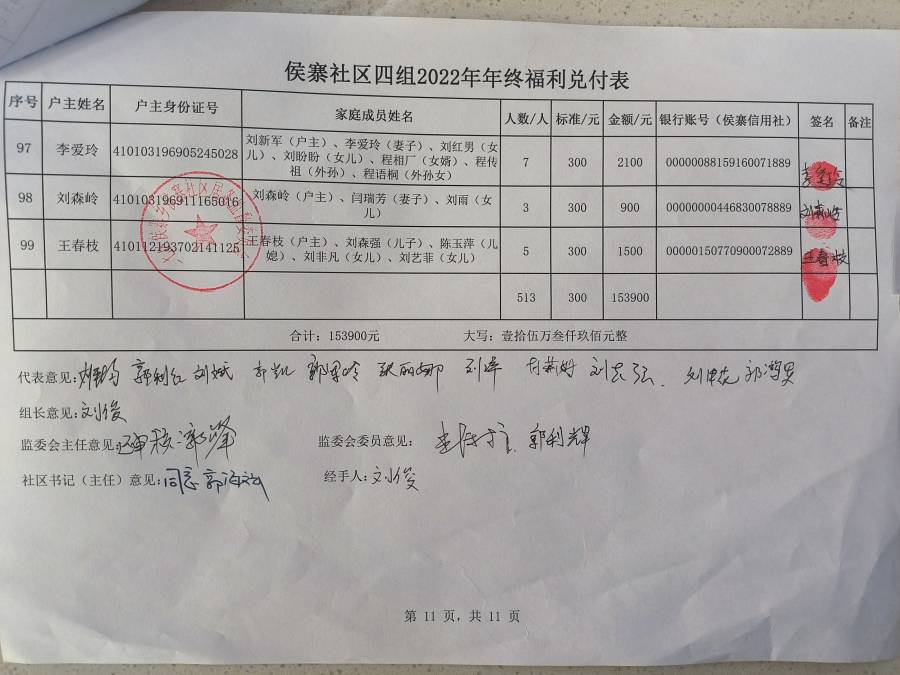 侯寨社区四组2022年年终福利兑付表
序号 户主姓名 户主身份证号 家庭成员姓名 人数/人 标准/元 金额/元 银行账号（侯寨信用社） 签名 备注
97 李爱玲 410103196905245028 刘新军（户主）、李爱玲（妻子）、刘红男（女
儿）、刘盼盼（女儿）、程相厂（女婿）、程传
祖（外孙）、程语桐（外孙女） 7 300 2100 00000088159160071889
98 刘森岭 410103196911165016 刘森岭（户主）、闫瑞芳（妻子）、刘雨（女
儿） 3 300 900 00000000446830078889 刘森岭
99 王春枝 410112193702141125 王春枝（户主）、刘森强（儿子）、陈玉萍（儿
媳）、刘非凡（女儿）、刘艺菲（女儿） 5 300 1500 00000150770900072889 王春枝
513 300 153900
合计：153900元 大写：壹拾伍万叁仟玖佰元整
代表意见： 郭利红 刘斌
组长意见：刘俊
监委会主任意见： 监委会委员意见： 郭利辉
社区书记（主任）意见：同意 经手人：刘俊
第 11 页，共 11 页